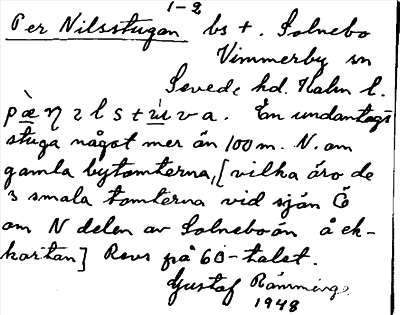 1-2
Per Nilsstugan bs +. Solnebo
Vimmerby sn
Sevede hd. Kalm l.
pæŋ2lst u̇va. En undantags
stuga något mer än 100 m. N. om
gamla bytomterna, [vilka äro de
3 smala tomterna vid sjön Ö
om N delen av Solneboån å ek-
kartan] Revs på 60-talet.
Gustaf Rämminge
1948